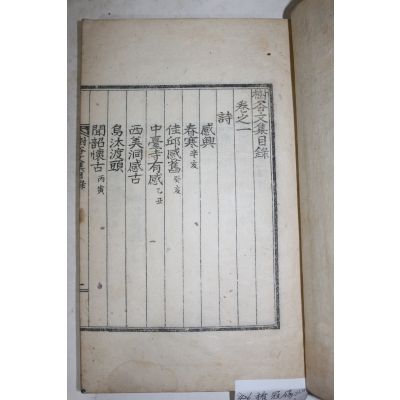 樹谷文集目錄
卷之一
詩
感興
春寒 辛亥
佳邱感舊 癸亥
中臺寺有感 乙丑
西美洞感古
烏汰渡頭
聞韶懷古 丙寅